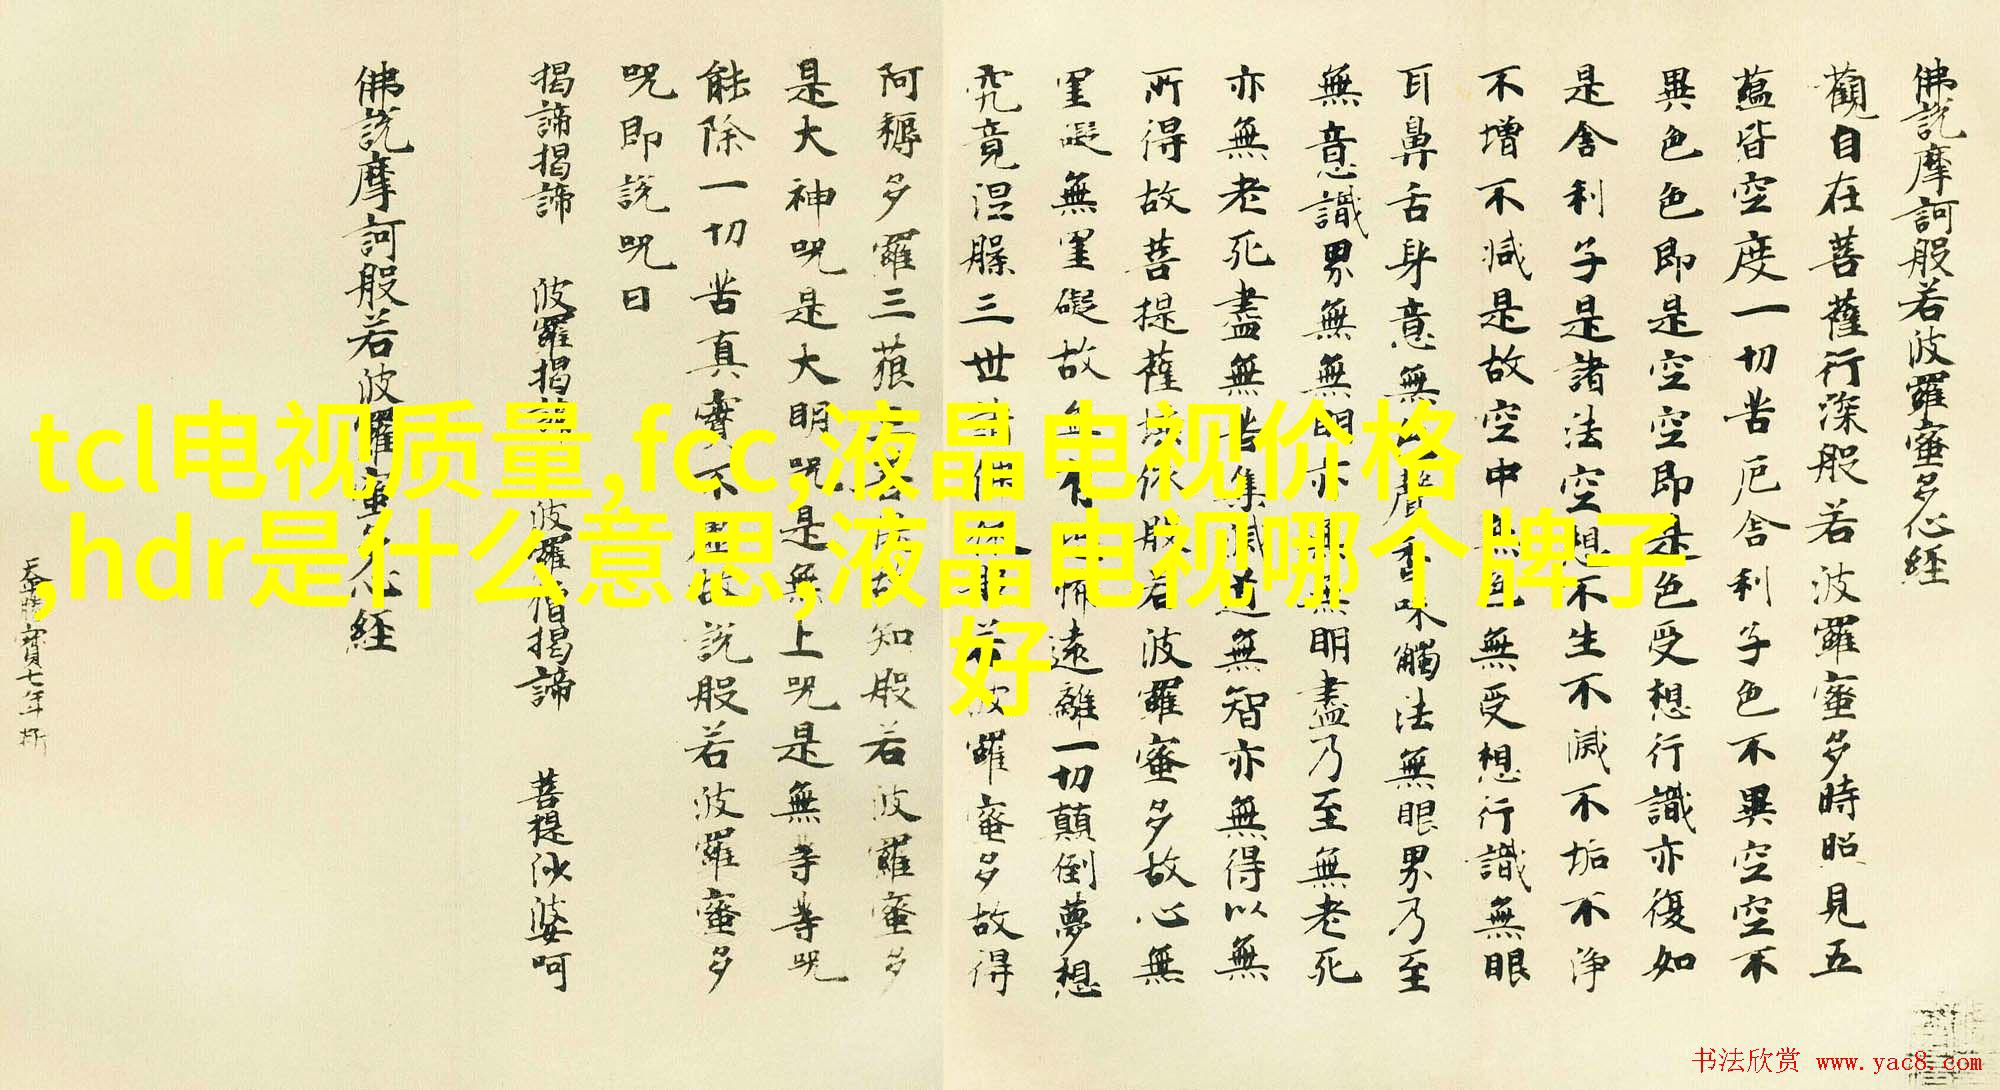 佛說摩訶般若波羅蜜多心經
觀自在菩薩行深般若波羅蜜多時照見五
蘊皆空度一切苦厄舍利子色不異空空不
異色色即是空空即是色受想行識亦復如
是舍利子是諸法空想不生不滅不垢不淨
不增不減是故空中無色無受想行識無眼
耳鼻舌身意無聲香味觸法無眼界乃至
無意識界無無明亦無無明盡乃至無老死
亦無老死盡無苦集滅道無智亦無得以無
所得故菩提薩埵依般若波羅蜜多故心無
罣礙無罣礙故無有恐怖遠離一切顛倒夢想
究竟涅槃三世諸佛依般若波羅蜜多故得
阿耨多羅三藐三菩提故知般若波羅蜜多
是大神呪是大明呪是無上呪是無等等呪
能除一切苦真實不虛故說般若波羅蜜多
呪即說呪曰
揭諦揭諦 波羅揭諦 波羅僧揭諦 菩提娑婆呵
佛說摩訶般若波羅蜜多心經
寶七年
tcl电视质量,fcc,液晶电视价格
,hdr是什么意思,液晶电视哪个牌子
好
书法欣赏 www.yac8.com